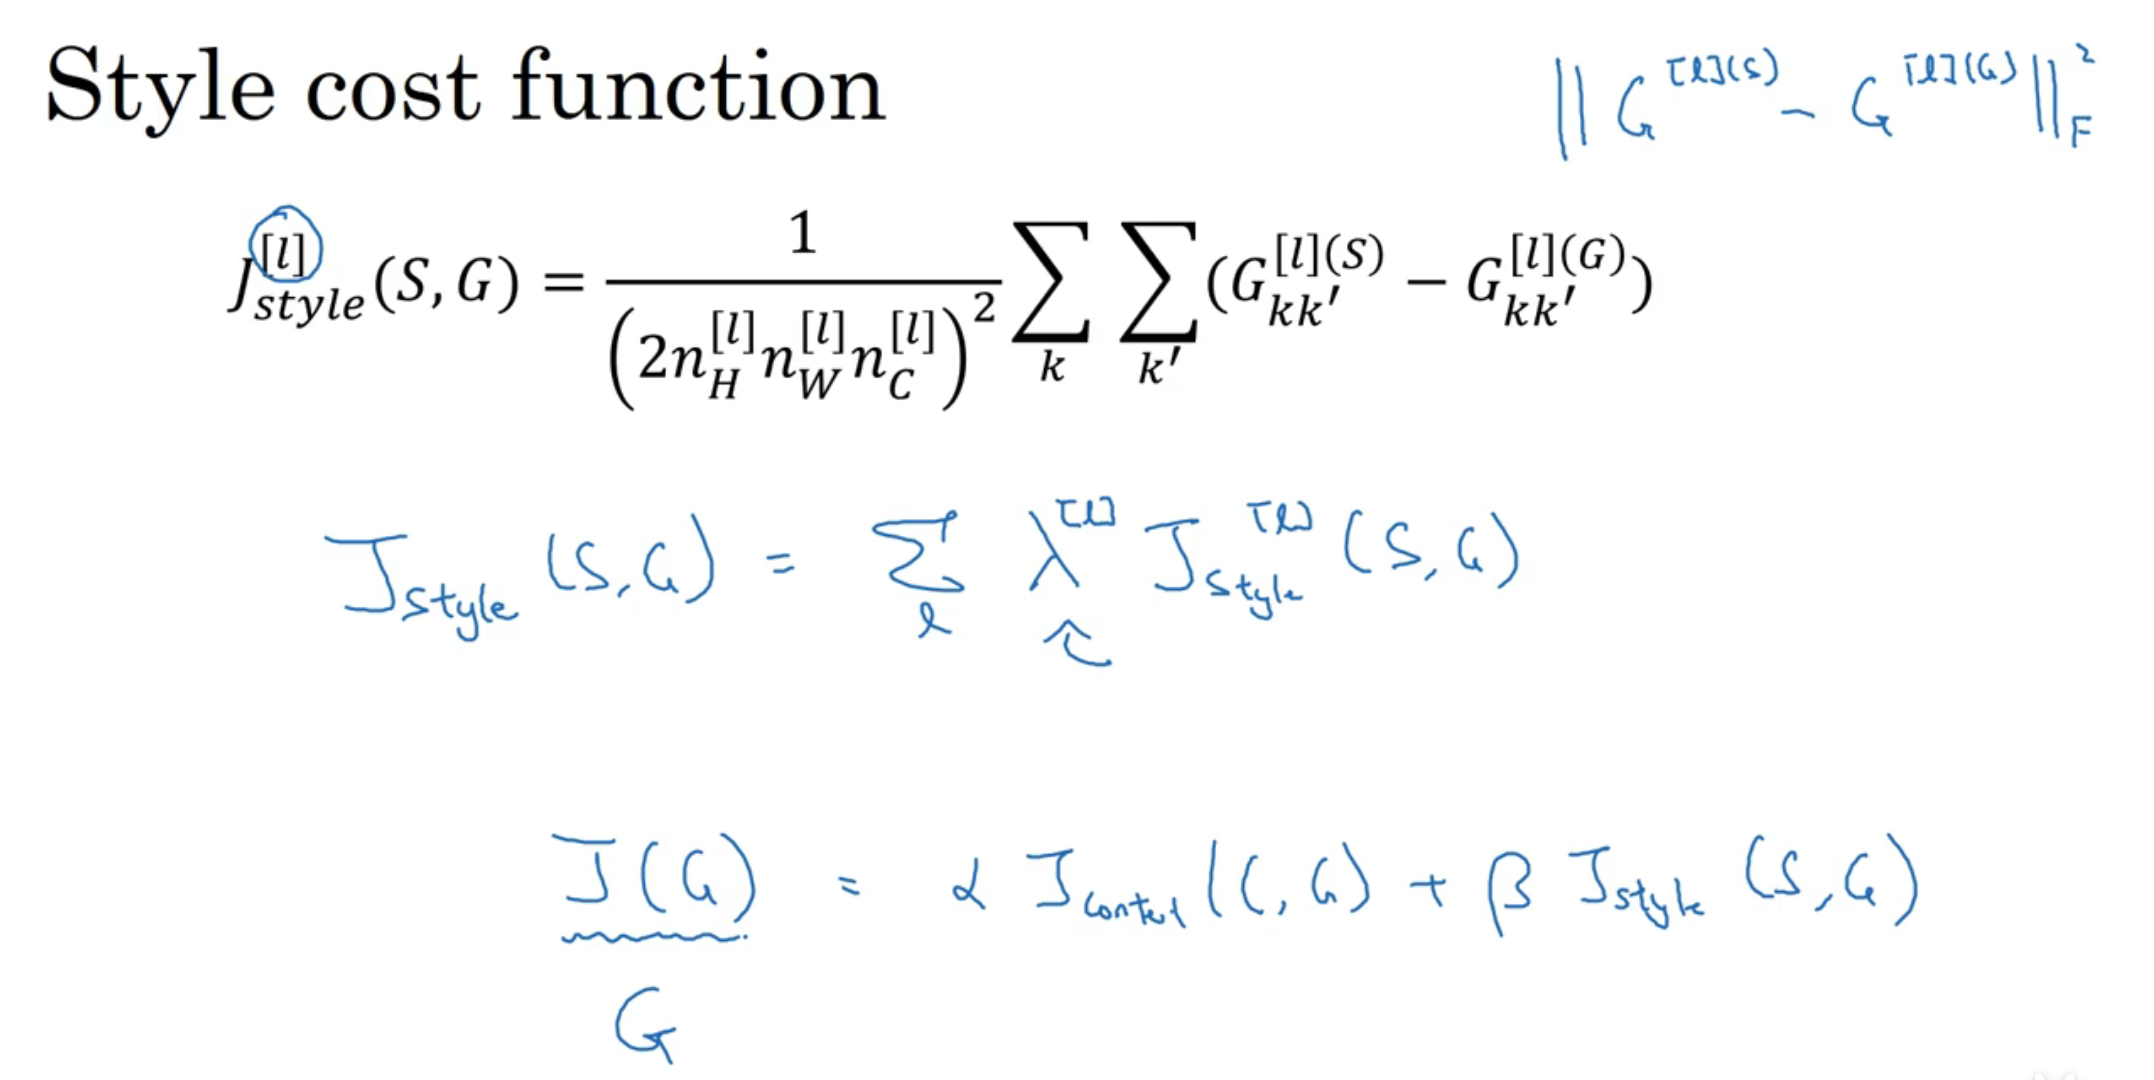 Style cost function
‖ G^{[l](S)} − G^{[l](G)} ‖_F^2
J_{style}^{[l]}(S, G) = \frac{1}{(2n_H^{[l]} n_W^{[l]} n_C^{[l]})^2} \sum_k \sum_{k'} (G_{kk'}^{[l](S)} − G_{kk'}^{[l](G)})
J_{style}(S, G) = \sum_l λ^{[l]} J_{style}^{[l]}(S, G)
J(G) = α J_{content}(C, G) + β J_{style}(S, G)
G